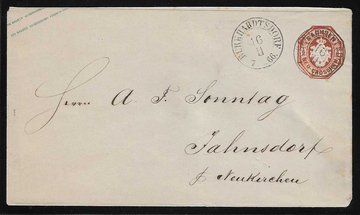 BURKHARDTSDORF
16
II
7 66.
Herrn A. F. Sonntag
Jahnsdorf
p Neukirchen